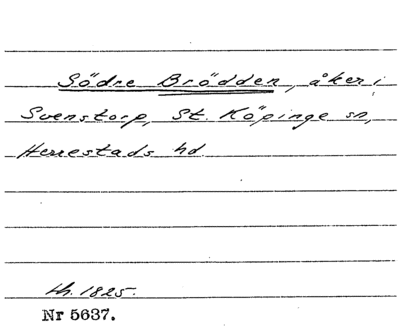 Södre Brödden, åker i
Svenstorp, St. Köpinge sn,
Herrestads hd.
lh. 1825.
Nr 5637.